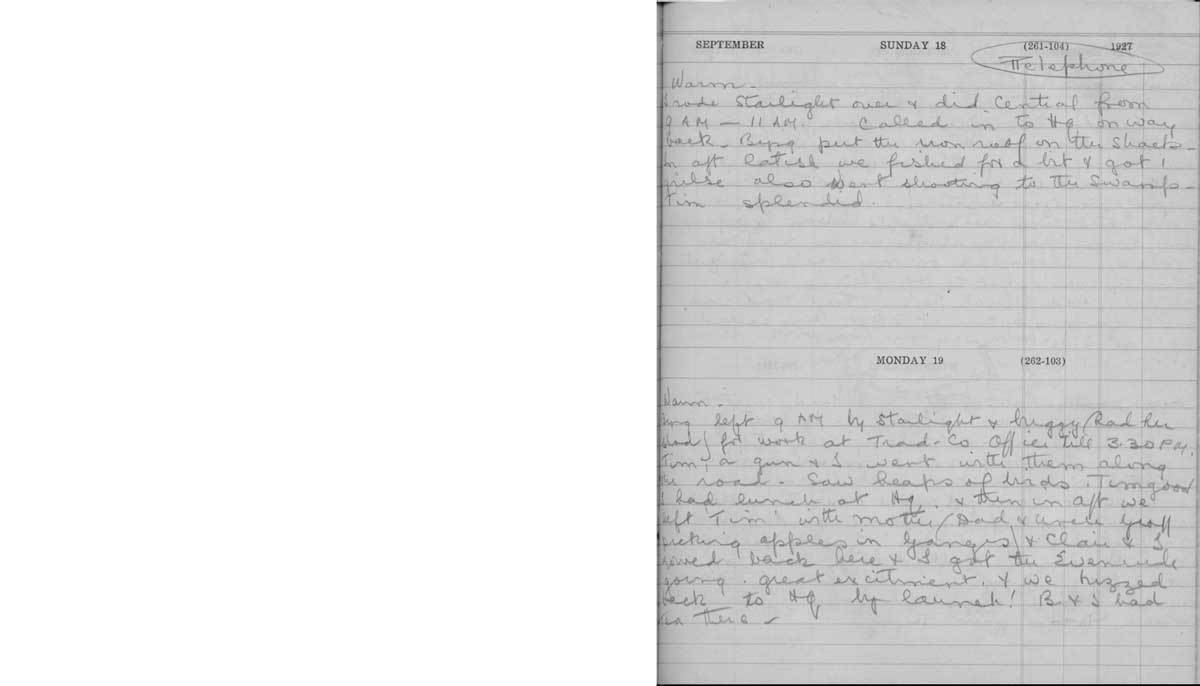 SEPTEMBER SUNDAY 18 (261-104) 1927
Telephone
Warm -
I rode Starlight over & did Central from
9 AM - 11 AM. Called in to Hq on way
back - Byng put the iron roof on the shack -
In aft latish we fished for a bit & got 1
grilse also went shooting to the Swamp -
Tim splendid.
MONDAY 19 (262-103)
Warm -
Byng left 9 AM by Starlight & buggy (had her
shod) for work at Trad-Co Office till 3.30 P.M.
Tim, a gun & I went with them along
the road - Saw heaps of birds. Tim good
I had lunch at Hq, & then in aft we
left 'Tim' with mother (Dad & Uncle Geoff
picking apples in Ganges) & Clair & I
rowed back here & I got the Evenrude
going. great excitment, & we hizzed
back to Hq by launch! B & I had
tea there -